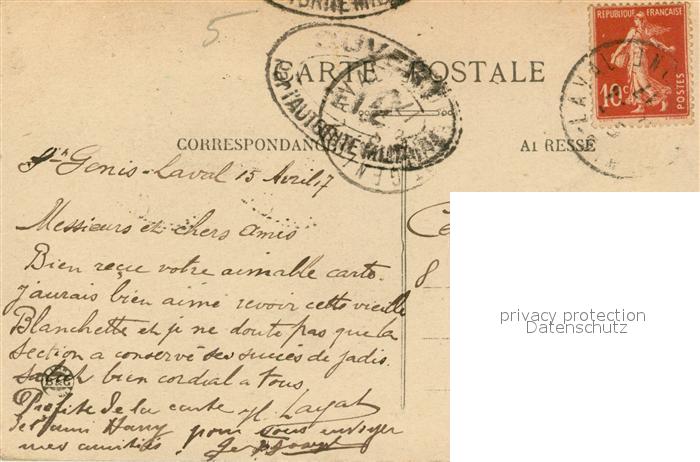 5
OUVERT
par l'AUTORITÉ MILITAIRE
CARTE POSTALE
REPUBLIQUE FRANÇAISE
10c
POSTES
LAVAL
CORRESPONDANCE
ADRESSE
St Genis-Laval 15 Avril 17
Messieurs et chers amis
Bien reçu votre aimable carte.
J'aurais bien aimé revoir cette vieille
Blanchette et je ne doute pas que la
section a conservé ses succès de jadis.
bien cordial a tous
B&G
Profite de la carte
de l'ami Harry pour vous envoyer
mes amitiés.
8
privacy protection
Datenschutz